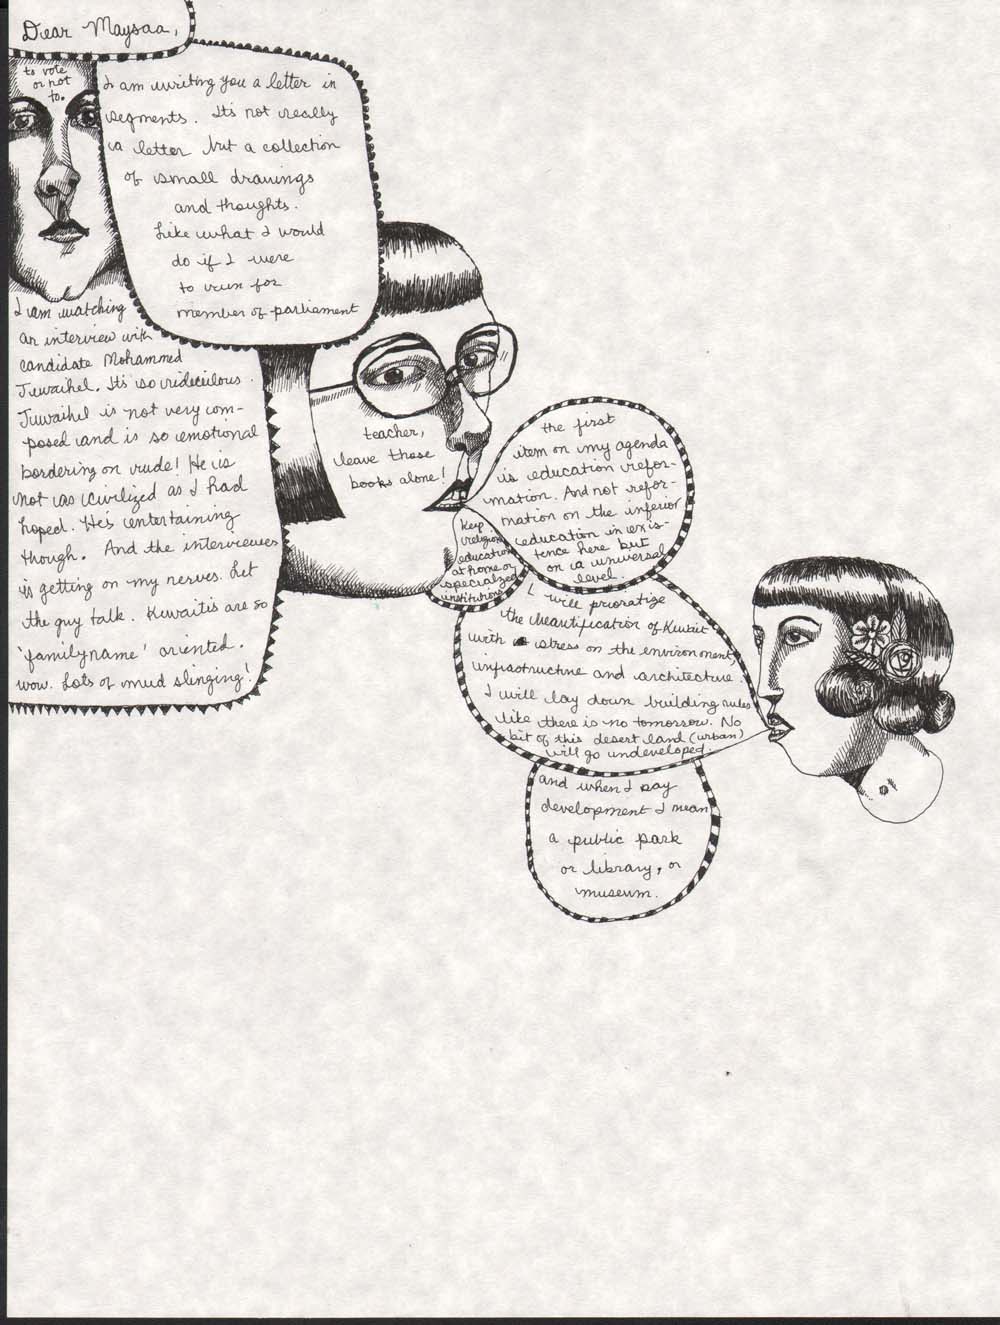 Dear Maysaa,
to vote
or not
to.
I am writing you a letter in
segments. It's not really
a letter but a collection
of small drawings
and thoughts.
Like what I would
do if I were
to run for
member of parliament
I am watching
an interview with
candidate Mohammed
Juwaihel. It's so ridiculous.
Juwaihel is not very com-
posed and is so emotional
bordering on rude! He is
not as civilized as I had
hoped. He's entertaining
though. And the interviewer
is getting on my nerves. Let
the guy talk. Kuwaitis are so
'family name' oriented.
wow. Lots of mud slinging!
teacher,
leave those
books alone!
the first
item on my agenda
is education refor-
mation. And not refor-
mation on the inferior
education in exis-
tence here but
on a universal
level.
Keep
religious
education
at home or
specialized
institutions
I will prioratize
the beautification of Kuwait
with stress on the environment,
infrastructure and architecture.
I will lay down building rules
like there is no tomorrow. No
bit of this desert land (urban)
will go undeveloped
and when I say
development I mean
a public park
or library, or
museum.